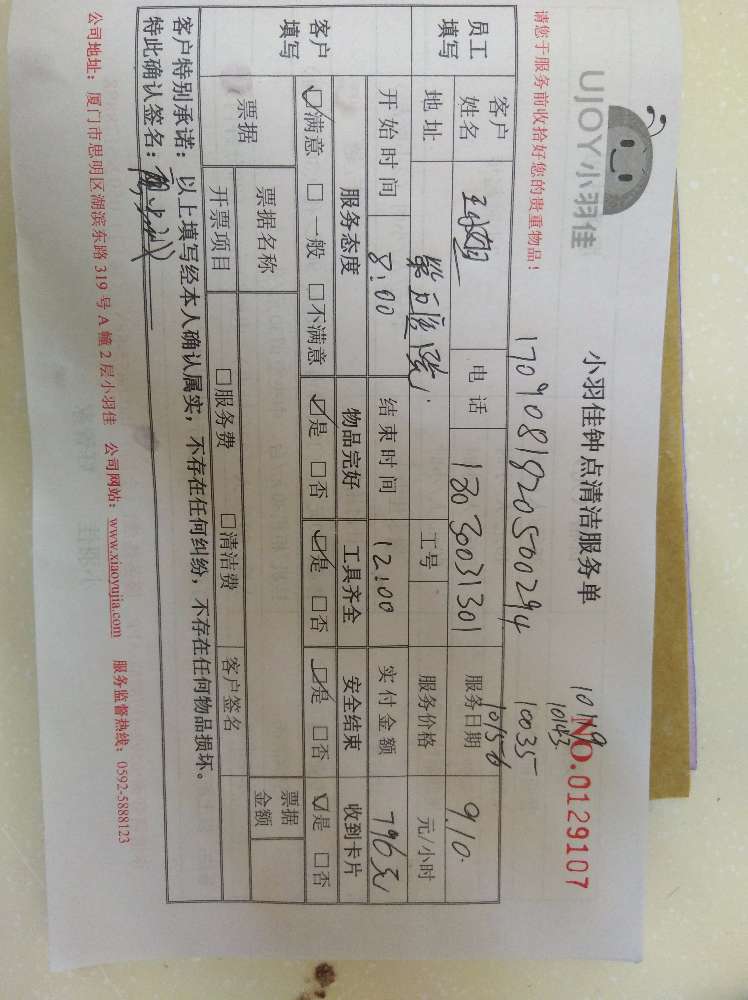 UJOY小羽佳
小羽佳钟点清洁服务单
NO.0129107
请您于服务前收拾好您的贵重物品！
1709081920500294
10035
10143
10156
员工填写
客户姓名
电话
13030031301
服务日期
9.10
地址
工号
服务价格
元/小时
客户填写
开始时间
8:00
结束时间
12:00
实付金额
796元
服务态度
物品完好
工具齐全
安全结束
收到卡片
☑满意 □一般 □不满意
☑是 □否
☑是 □否
☑是 □否
☑是 □否
票据
票据名称
票据金额
开票项目
□服务费
□清洁费
客户签名
客户特别承诺：以上填写经本人确认属实，不存在任何纠纷，不存在任何物品损坏。
特此确认签名：
公司地址：厦门市思明区湖滨东路319号A幢2层小羽佳 公司网站：www.xiaoyujia.com 服务监督热线：0592-5888123